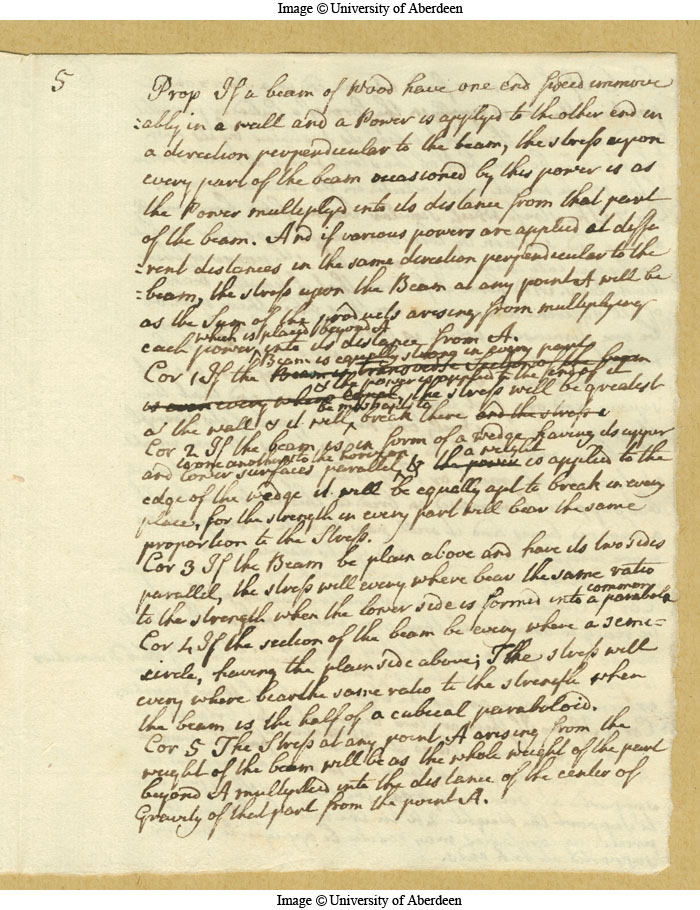 Image © University of Aberdeen
5
Prop If a beam of Wood have one end fixed immove
=ably in a wall and a Power is applyed to the other end in
a direction perpendicular to the beam, the stress upon
every part of the beam occasioned by this power is as
the Power multiplyed into its distance from that part
of the beam. And if various powers are applied at diffe
=rent distances in the same direction perpendicular to the
=beam, the stress upon the Beam at any point A will be
as the Sum of the products arising from multiplying
which is placed beyond A
each power into its distance from A.
Beam is equally strong in every part
Cor 1 If the Beam is transverse section of the beam
& the power is applied to the end of it
is even every where equal, the stress will be greatest
be most apt to
at the wall & it will break there and the stress
Cor 2 If the beam is in form of a wedge having its upper
to one another & to the horizon a weight
and lower surfaces parallel & the power is applied to the
edge of the wedge it will be equally apt to break in every
place, for the strength in every part will bear the same
proportion to the Stress.
Cor 3 If the Beam be plain above and have its two sides
parallel, the stress will every where bear the same ratio
common
to the strength when the lower side is formed into a parabola
Cor 4 If the section of the beam be every where a semi=
circle, having the plain side above; The stress will
every where bear the same ratio to the strength when
the beam is the half of a cubical paraboloid.
Cor 5 The Stress at any point A arising from the
weight of the beam will be as the whole weight of the part
beyond A multiplied into the distance of the center of
Gravity of that part from the point A.
Image © University of Aberdeen